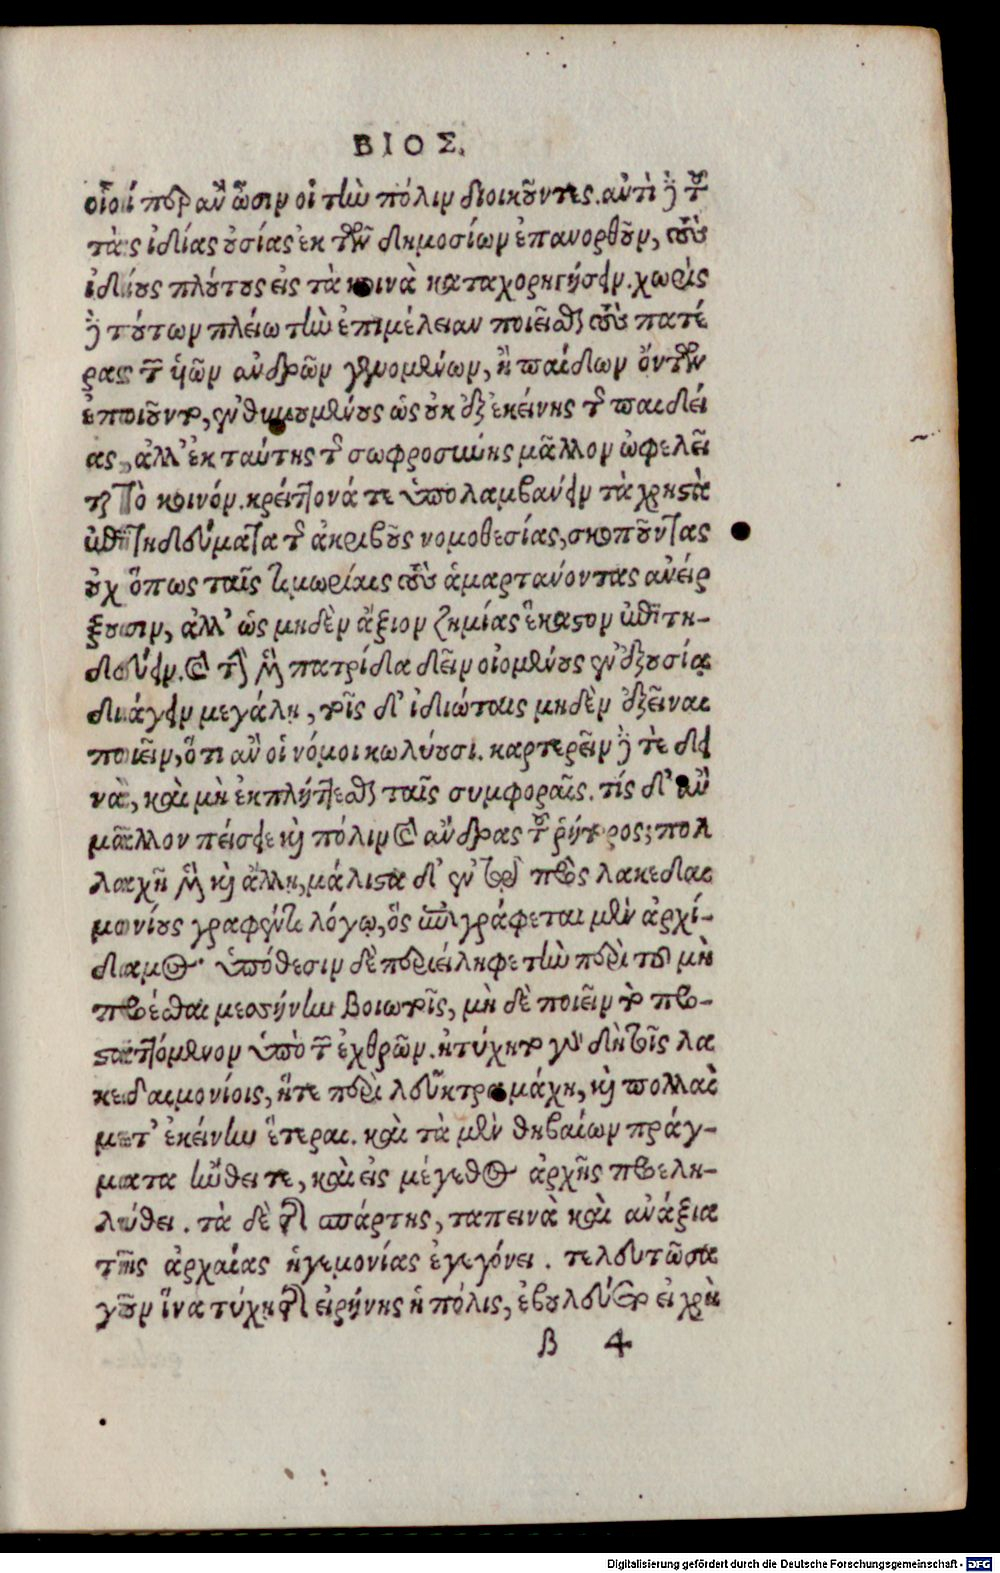 ΒΙΟΣ.
οἷοί περ ἂν ὦσιν οἱ τὴν πόλιν διοικοῦντες. ἀντὶ δὲ τοῦ
τὰς ἰδίας οὐσίας ἐκ τῶν δημοσίων ἐπανορθοῦν, τοὺς
ἰδίους πλούτους εἰς τὰ κοινὰ καταχορηγήσειν. χωρὶς
δὲ τούτων πλείω τὴν ἐπιμέλειαν ποιεῖσθαι τοὺς πατέ
ρας τῶν υἱῶν ἀνδρῶν γενομένων, ἢ παίδων ὄντων
ἐποιοῦντο, ἐνθυμουμένους ὡς οὐκ ἐξ ἐκείνης τῆς παιδεί
ας, ἀλλ' ἐκ ταύτης τῆς σωφροσύνης μᾶλλον ὠφελεῖ
ται τὸ κοινόν. κρείττονά τε ὑπολαμβάνειν τὰ χρηστὰ
ἐπιτηδεύματα τῆς ἀκριβοῦς νομοθεσίας, σκοποῦντας
οὐχ ὅπως ταῖς τιμωρίαις τοὺς ἁμαρτάνοντας ἀνείρ
ξουσιν, ἀλλ' ὡς μηδὲν ἄξιον ζημίας ἕκαστον ἐπιτη-
δεύειν. καὶ τὴν μὲν πατρίδα δεῖν οἰομένους ἐν ἐξουσίᾳ
διάγειν μεγάλῃ, τοῖς δ' ἰδιώταις μηδὲν ἐξεῖναι
ποιεῖν, ὅτι ἂν οἱ νόμοι κωλύουσι. καρτερεῖν δὲ τὰ δει
νὰ, καὶ μὴ ἐκπλήττεσθαι ταῖς συμφοραῖς. τίς δ' ἂν
μᾶλλον πείσειε καὶ πόλιν καὶ ἄνδρας τοῦ ῥήτορος; πολ
λαχῆ μὲν καὶ ἄλλῃ, μάλιστα δ' ἐν τῷ πρὸς λακεδαι
μονίους γραφέντι λόγῳ, ὃς ἐπιγράφεται μὲν ἀρχί-
δαμος· ὑπόθεσιν δὲ περιείληφε τὴν περὶ τοῦ μὴ
προέσθαι μεσήνην Βοιωτοῖς, μὴ δὲ ποιεῖν τὸ προ-
σταττόμενον ὑπὸ τῶν ἐχθρῶν. ἠτύχητο γὰρ δὴ τοῖς λα
κεδαιμονίοις, ἥτε περὶ λεῦκτρα μάχη, καὶ πολλαὶ
μετ' ἐκείνην ἕτεραι. καὶ τὰ μὲν θηβαίων πράγ-
ματα ηὔθει τε, καὶ εἰς μέγεθος ἀρχῆς προελη-
λύθει. τὰ δὲ τῆς σπάρτης, ταπεινὰ καὶ ἀνάξια
τῆς ἀρχαίας ἡγεμονίας ἐγεγόνει. τελευτῶσα
γοῦν ἵνα τύχῃ τῆς εἰρήνης ἡ πόλις, ἐβουλεύετο εἰ χρὴ
β 4
Digitalisierung gefördert durch die Deutsche Forschungsgemeinschaft - DFG